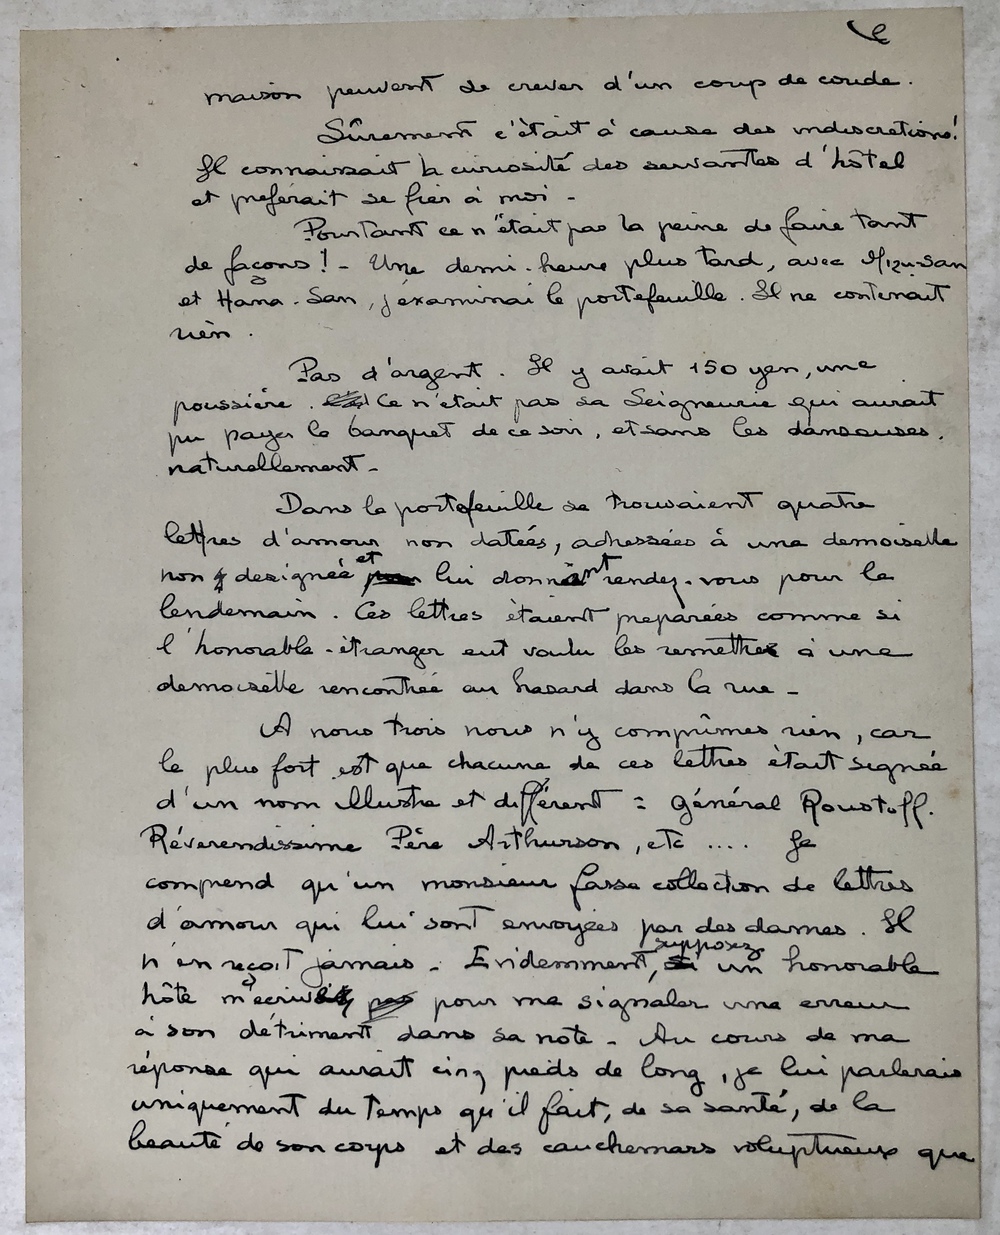 maison peuvent se crever d'un coup de coude.
Sûrement c'était à cause des indiscretions!
Il connaissait la curiosité des servantes d'hôtel
et preférait se fier à moi -
Pourtant ce n'était pas la peine de faire tant
de façons! - Une demi-heure plus tard, avec Mizu-San
et Hana-San, j'examinai le portefeuille. Il ne contenait
rien.
Pas d'argent. Il y avait 150 yen, une
poussière. Ce n'était pas sa Seigneurie qui aurait
pu payer le banquet de ce soir, et sans les danseuses,
naturellement -
Dans le portefeuille se trouvaient quatre
lettres d'amour non datées, adressées à une demoiselle
non designée et lui donnant rendez-vous pour le
lendemain. Ces lettres étaient preparées comme si
l'honorable-étranger eut voulu les remettre à une
demoiselle rencontrée au hasard dans la rue -
A nous trois nous n'y comprîmes rien, car
le plus fort est que chacune de ces lettres était signée
d'un nom illustre et différent : Général Roustoff.
Réverendissime Père Arthurson, etc .... Je
comprend qu'un monsieur fasse collection de lettres
d'amour qui lui sont envoyées par des dames. Il
n'en reçoit jamais - Evidemment, supposez un honorable
hôte m'écrivit pour me signaler une erreur
à son détriment dans sa note - Au cours de ma
réponse qui aurait cinq pieds de long, je lui parlerais
uniquement du temps qu'il fait, de sa santé, de la
beauté de son corps et des cauchemars voluptueux que